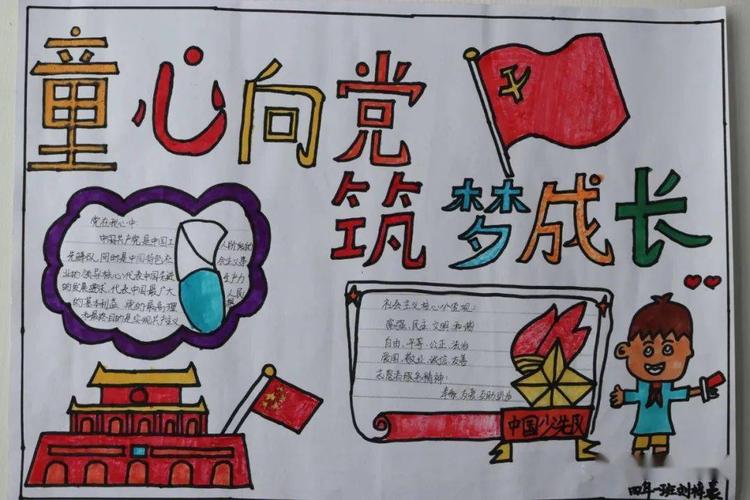 童心向党
筑梦成长
党在我心中
中国共产党是中国工人阶级的
先锋队,同时是中国特色社会主义事
业的领导核心,代表中国先进生产力
的发展要求,代表中国最广大人民
的基本利益 党的最高理
和最终目的是实现共产主义
社会主义核心价值观:
富强、民主、文明、和谐
自由、平等、公正、法治
爱国、敬业、诚信、友善
志愿者服务精神:
奉献、友爱、互助
中国少先队
四年一班刘